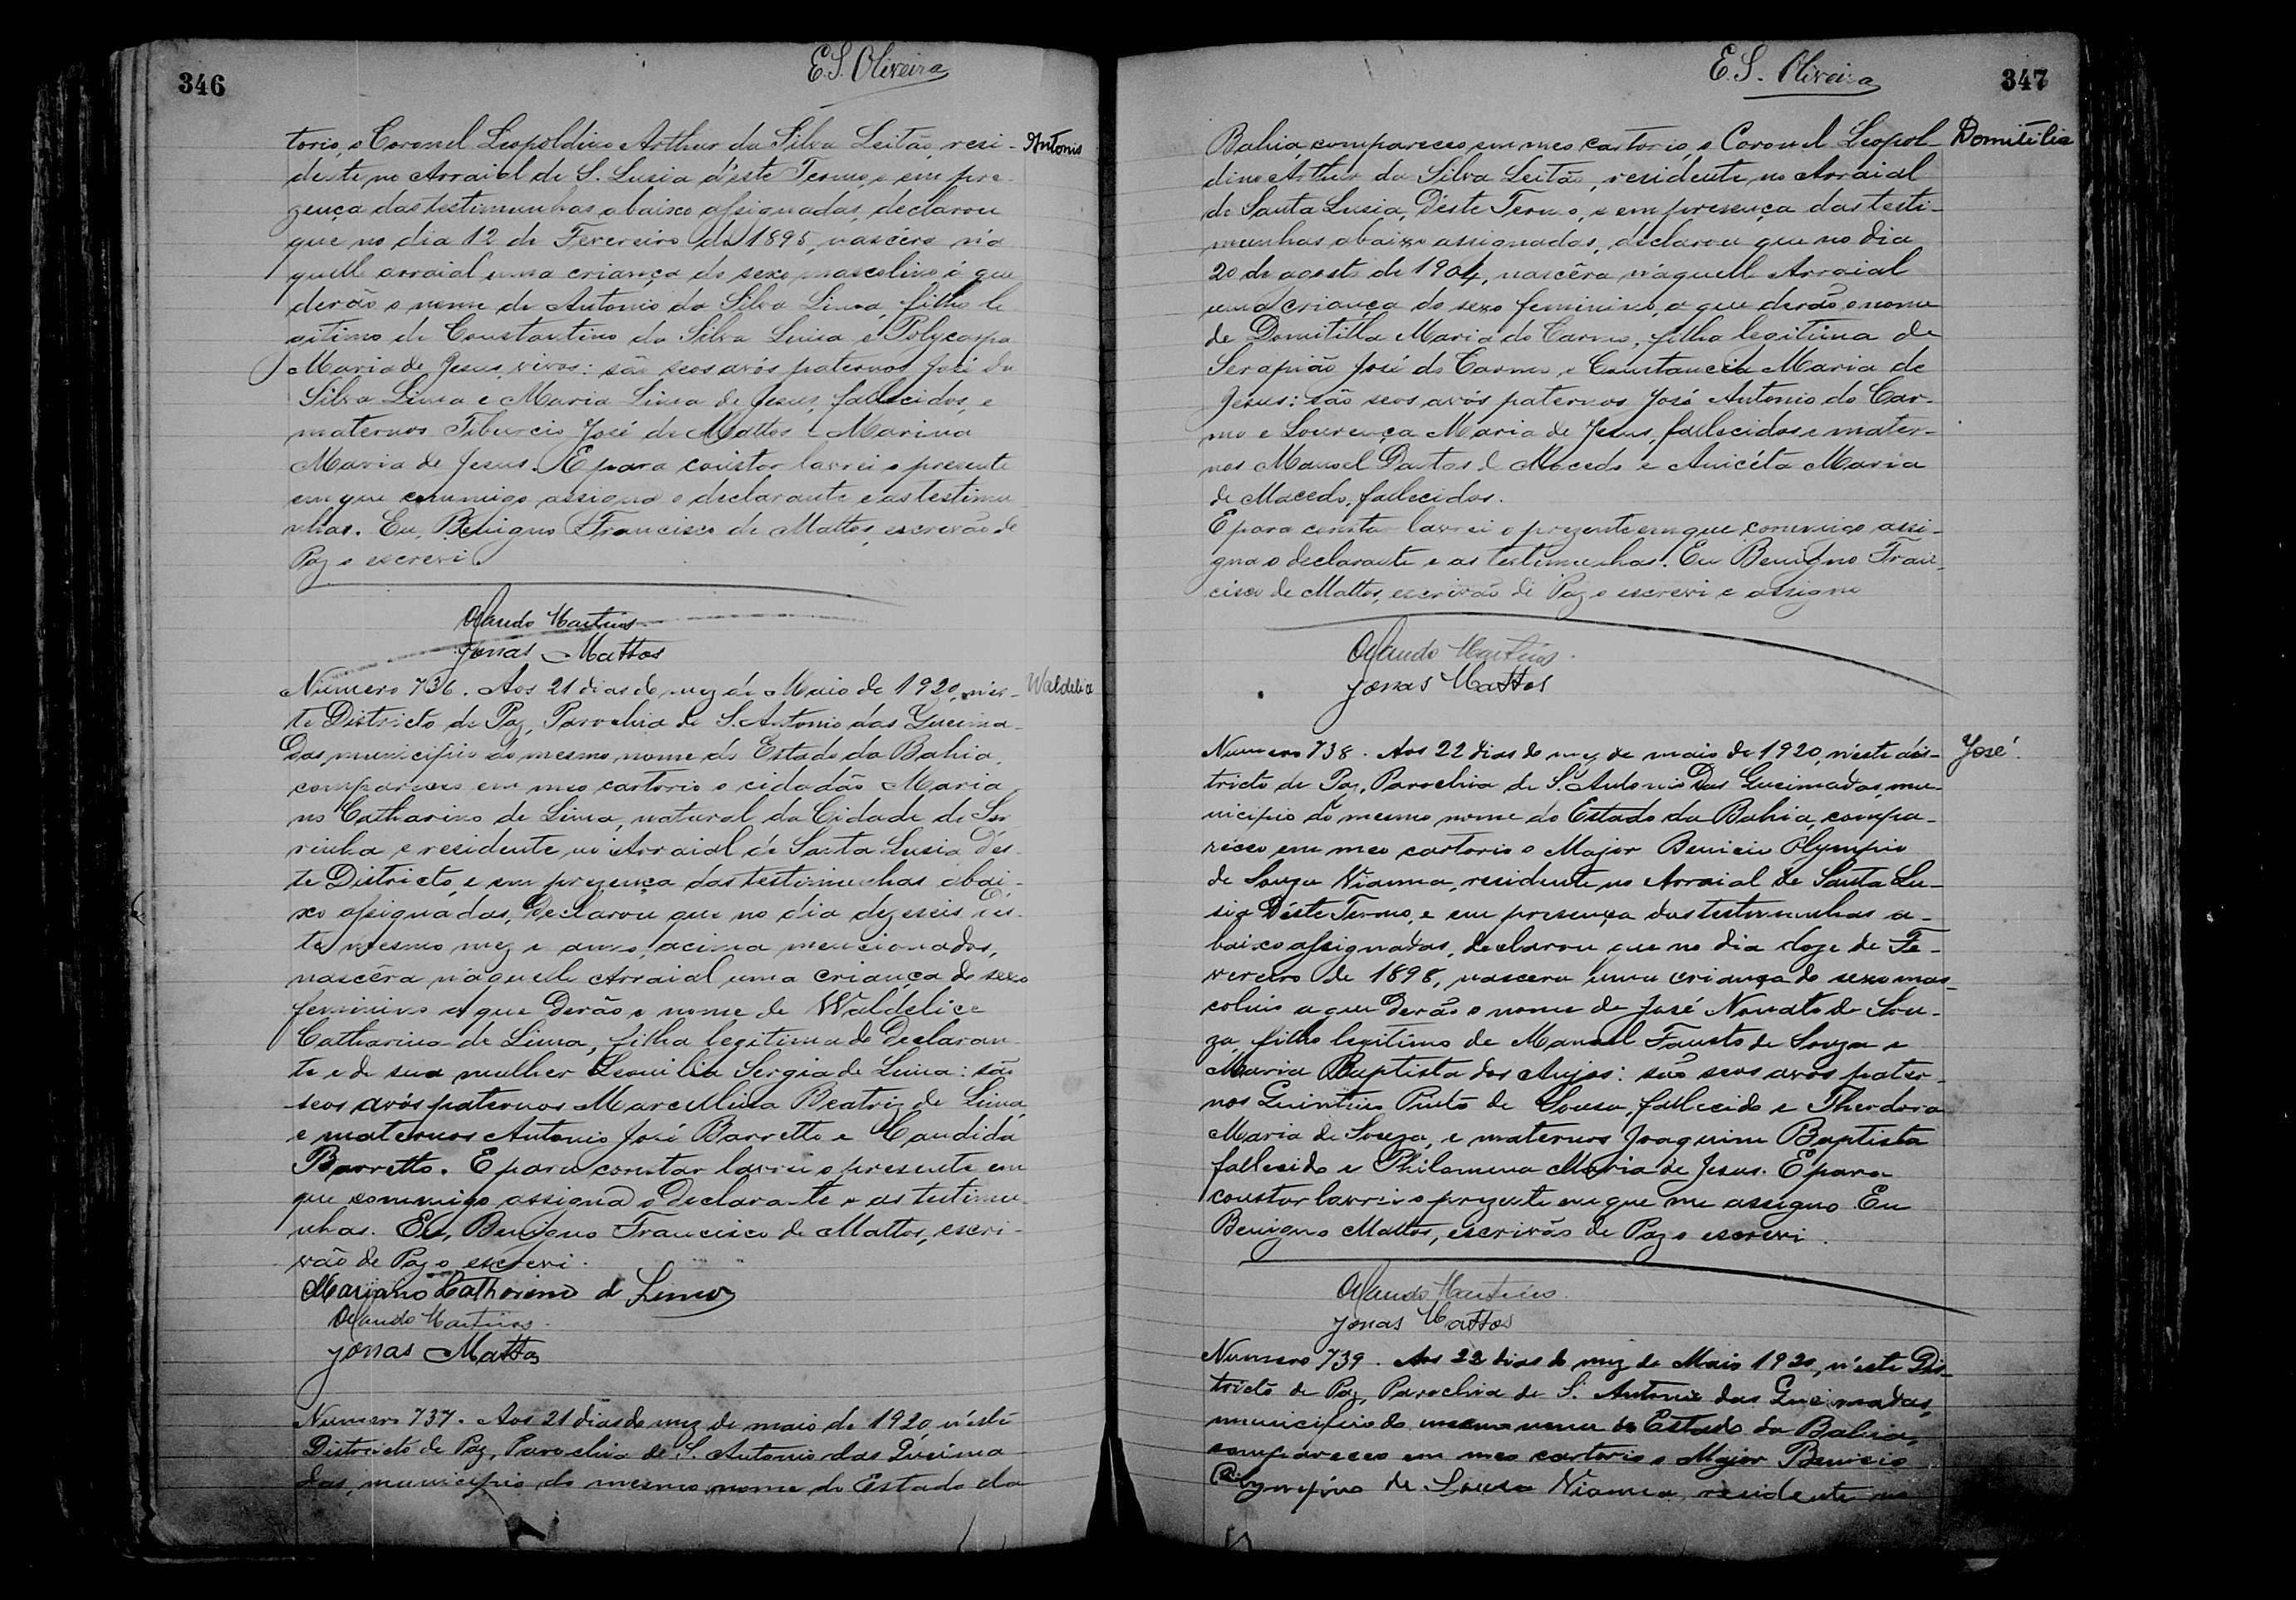 346
E.S. Oliveira
torio, o Coronel Leopoldino Arthur da Silva Leitão, resi-
Antonio
dente no Arraial de S. Lusia d'este Termo, e em pre-
zença das testimunhas abaixo assignadas, declarou
que no dia 12 de Fevereiro de 1895, nascêra n'a-
quelle arraial uma criança do sexo masculino á que
derão o nome de Antonio da Silva Lima, filho le-
gitimo de Constantino da Silva Lima e Polycarpa
Maria de Jesus, vivos: são seos avós paternos José da
Silva Lima e Maria Lima de Jesus, fallecidos, e
maternos Tiburcio José de Mattos e Marina
Maria de Jesus. E para constar lavrei o presente
em que commigo assigna o declarante e as testimu-
nhas. Eu, Benigno Francisco de Mattos, escrivão de
Paz o escrevi
Orlando Martins
Jonas Mattos
Numero 736. Aos 21 dias do mez de Maio de 1920, n'es-
Waldelice
te Districto de Paz, Parochia de S. Antonio das Queima-
das, municipio do mesmo nome do Estado da Bahia,
compareceo em meo cartorio o cidadão Maria
no Catharino de Lima, natural da Cidade de Ser-
rinha e residente no Arraial de Santa Lusia d'es-
te Districto, e em prezença das testimunhas abai-
xo assignadas, declarou que no dia dezeseis d'es-
te mesmo mez e anno, acima mencionados,
nascêra n'aquelle Arraial uma criança do sexo
feminino a que derão o nome de Waldelice
Catharina de Lima, filha legitima do Declaran-
te e de sua mulher Leonilia Sergia de Lima: são
seos avós paternos Marcellina Beatriz de Lima,
e maternos Antonio José Barretto e Candida
Barretto. E para constar lavrei o presente em
que commigo assigna o Declarante e as testimu-
nhas. Eu, Benigno Francisco de Mattos, escri-
vão de Paz o escrevi.
Mariano Catharino de Lima
Orlando Martins.
Jonas Mattos
Numero 737. Aos 21 dias do mez de maio de 1920, n'este
Districto de Paz, Parochia de S. Antonio das Queima
das, municipio do mesmo nome do Estado da
E.S. Oliveira
347
Bahia, compareceo em meo cartorio, o Coronel Leopol-
Domitilia
dino Arthur da Silva Leitão, residente no Arraial
de Santa Lusia, D'este Termo, e em presença das testi-
munhas abaixo assignadas, declarou que no dia
20 de agosto de 1904, nascêra n'aquelle Arraial
uma criança do sexo feminino, a que derão o nome
de Domitilla Maria do Carmo, filha legitima de
Serapião José do Carmo e Constancia Maria de
Jesus: são seos avós paternos José Antonio do Car-
mo e Lourença Maria de Jesus, fallecidos e mater-
nos Manoel Dantas de Macedo e Anicéta Maria
de Macedo, fallecidos.
E para constar lavrei o prezente em que commigo assi-
gna o declarante e as testimunhas. Eu Benigno Fran-
cisco de Mattos, escrivão de Paz o escrevi e assigno
Orlando Martins.
Jonas Mattos
Numero 738. Aos 22 dias do mez de maio de 1920, n'este dis-
José.
tricto de Paz, Parochia de S. Antonio Das Queimadas, mu-
nicipio do mesmo nome do Estado da Bahia, compa-
receo em meo cartorio o Major Benicio Olympio
de Souza Vianna, residente no Arraial de Santa Lu-
sia D'este Termo, e em presença das testimunhas a-
baixo assignadas, declarou que no dia doze de Fe-
vereiro de 1898, nascera uma criança do sexo mas-
colino a que derão o nome de José Nonato de Sou-
za, filho legitimo de Manoel Fausto de Souza e
Maria Baptista dos Anjos: são seos avós pater-
nos Quintino Pinto de Sousa, fallecido e Theodora
Maria de Souza, e maternos Joaquim Baptista
fallecido e Philomena Maria de Jesus. E para
constar lavrei o prezente em que me assigno Eu
Benigno Mattos, escrivão de Paz o escrevi.
Orlando Martins.
Jonas Mattos
Numero 739. Aos 22 dias do mez de Maio 1920, n'este Dis-
tricto de Paz, Parochia de S. Antonio das Queimadas,
municipio do mesmo nome do Estado da Bahia,
compareceo em meo cartorio o Major Benicio
Olympio de Sousa Vianna, residente no